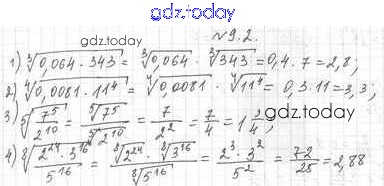 gdz.today
№9.2.
gdz.today
1) ∛(0,064 · 343) = ∛0,064 · ∛343 = 0,4 · 7 = 2,8;
2) ∜(0,0081 · 11⁴) = ∜0,0081 · ∜11⁴ = 0,3 · 11 = 3,3;
3) ⁵√(7⁵/2¹⁰) = ⁵√7⁵/⁵√2¹⁰ = 7/2² = 7/4 = 1 3/4;
gdz.today
4) ⁸√(2²⁴ · 3¹⁶/5¹⁶) = ⁸√2²⁴ · ⁸√3¹⁶/⁸√5¹⁶ = 2³ · 3²/5² = 72/25 = 2,88